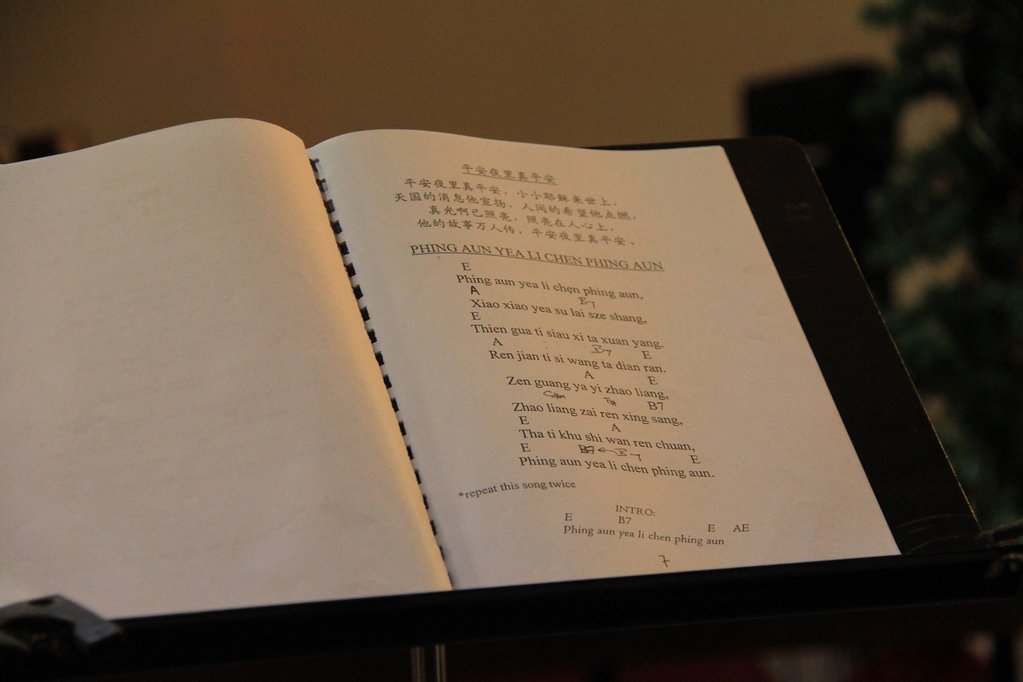 平安夜里真平安
平安夜里真平安，小小耶稣来世上，
天国的消息他宣扬，人间的希望他点燃。
真光啊已照亮，照亮在人心上，
他的故事万人传，平安夜里真平安。
PHING AUN YEA LI CHEN PHING AUN
E
Phing aun yea li chen phing aun,
A B7
Xiao xiao yea su lai sze shang,
E
Thien gua ti siau xi ta xuan yang.
A B7 E
Ren jian ti si wang ta dian ran.
A E
Zen guang ya yi zhao liang,
B7
Zhao liang zai ren xing sang,
E A
Tha ti khu shi wan ren chuan,
E B7 E
Phing aun yea li chen phing aun.
*repeat this song twice
INTRO:
E B7 E AE
Phing aun yea li chen phing aun
7